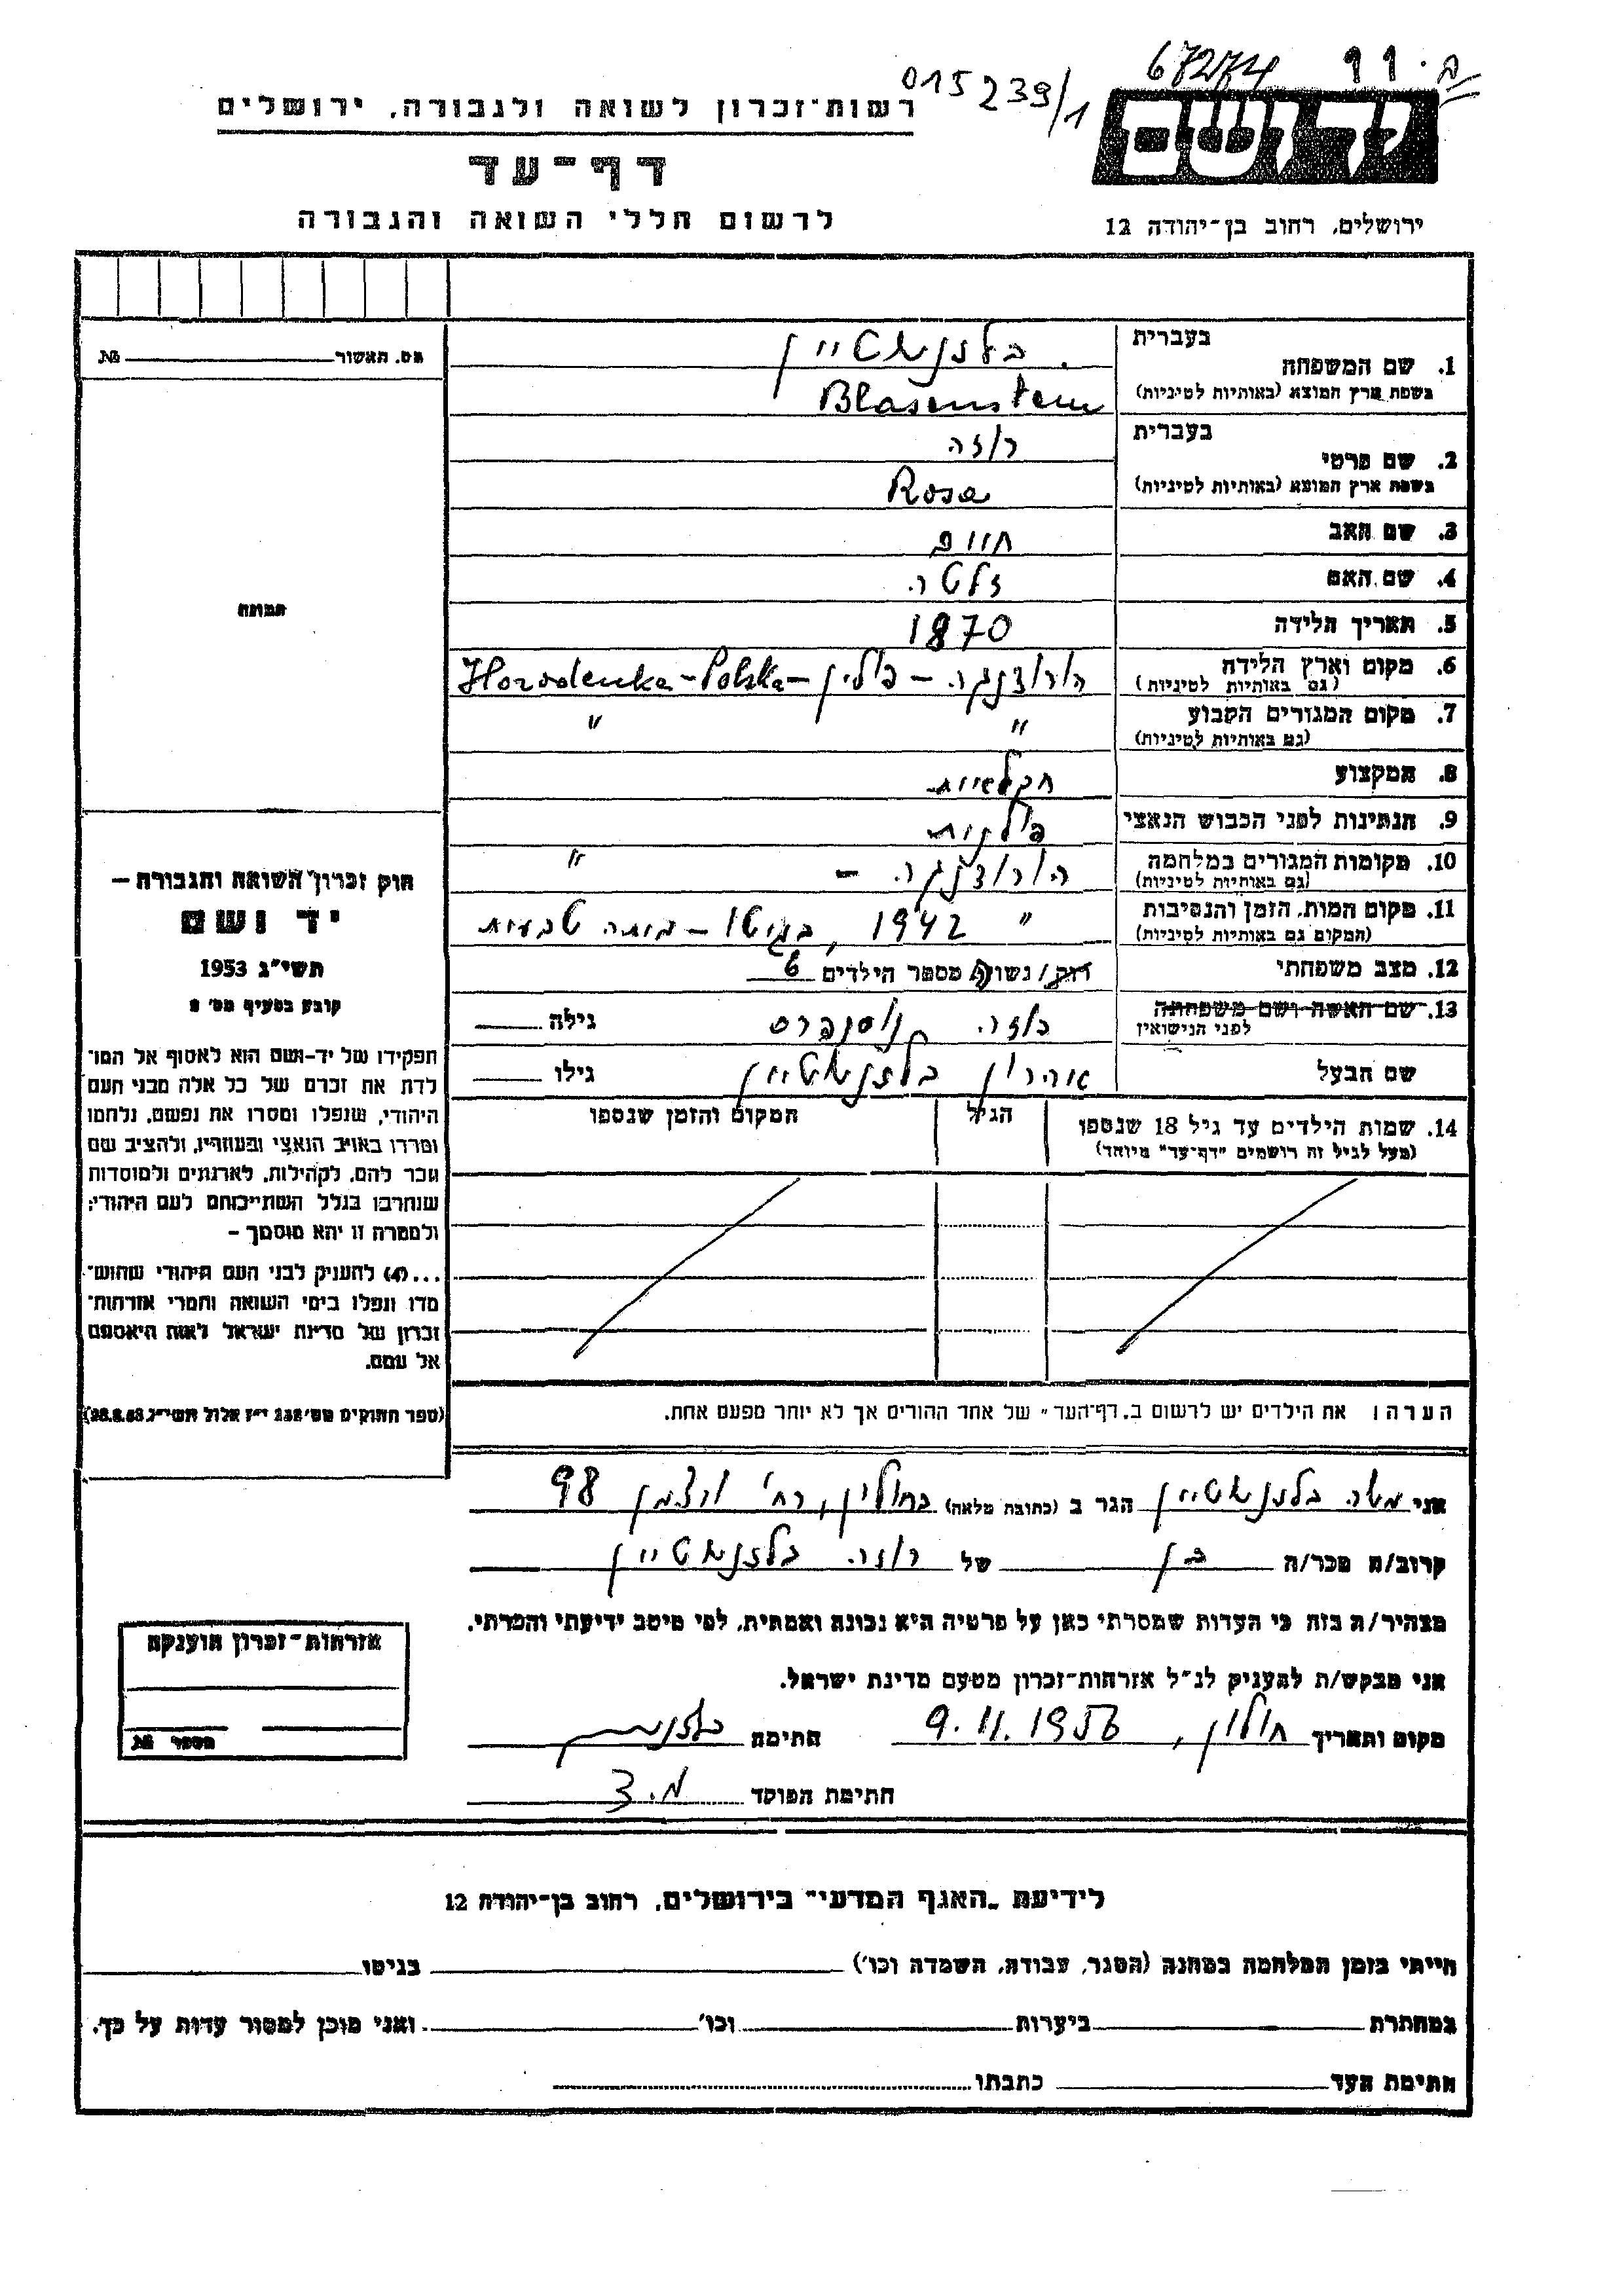 67274 פ. 99
015239/1
רשות-זכרון לשואה ולגבורה, ירושלים
דף-עד
לרשום חללי השואה והגבורה
יד ושם
ירושלים, רחוב בן-יהודה 12
מס. תאשור № 
1. שם המשפחה בעברית בלזנשטיין
בשפת ארץ המוצא (באותיות לטיניות) Blasenstein
2. שם פרטי בעברית רוזה
בשפת ארץ המוצא (באותיות לטיניות) Rosa
3. שם האב חיים
4. שם האם זלטה
5. תאריך הלידה 1870
6. מקום וארץ הלידה (גם באותיות לטיניות) הורודנקה – פולין – Horodenka – Polska
7. מקום המגורים הקבוע (גם באותיות לטיניות) " "
8. המקצוע חקלאית
9. הנתינות לפני הכבוש הנאצי פולנית
10. מקומות המגורים במלחמה (גם באותיות לטיניות) הורודנקה – "
11. מקום המות, הזמן והנסיבות (המקום גם באותיות לטיניות) " 1942, בגיטו – מיתה טבעית
12. מצב משפחתי רוק/נשוי/ה מספר הילדים 6
13. שם האשה ושם משפחתה לפני הנישואין רוזה גילה
שם הבעל אהרון בלזנשטיין גילו
14. שמות הילדים עד גיל 18 שנספו הגיל המקום והזמן שנספו
(מעל לגיל זה רושמים "דף-עד" מיוחד)
הערה: את הילדים יש לרשום ב„דף-העד" של אחד ההורים אך לא יותר מפעם אחת.
תמונה
חוק זכרון השואה והגבורה –
יד ושם
תשי"ג 1953
קובע בסעיף מס' 2
תפקידו של יד-ושם הוא לאסוף אל המו־
לדת את זכרם של כל אלה מבני העם
היהודי, שנפלו ומסרו את נפשם, נלחמו
ומרדו באויב הנאצי ובעוזריו, ולהציב שם
וזכר להם, לקהילות, לארגונים ולמוסדות
שנחרבו בגלל השתייכותם לעם היהודי;
ולמטרה זו יהא מוסמך –
...(4) להעניק לבני העם היהודי שהוש־
מדו ונפלו בימי השואה והמרי אזרחות־
זכרון של מדינת ישראל לאות היאספם
אל עמם.
(ספר החוקים מס' 132 י"ז אלול תשי"ג 28.8.53)
אני משה בלזנשטיין הגר ב (כתובת מלאה) בחולון, רח' ויצמן 98
קרוב/ה מכר/ה בן של רוזה בלזנשטיין
מצהיר/ה בזה כי העדות שמסרתי כאן על פרטיה היא נכונה ואמתית, לפי מיטב ידיעתי והכרתי.
אני מבקש/ת להעניק לנ"ל אזרחות-זכרון מטעם מדינת ישראל.
מקום ותאריך חולון, 9.11.1956 חתימה
חתימת הפוקד מ.צ
אזרחות-זכרון הוענקה
מספר №
לידיעת „האגף המדעי" בירושלים, רחוב בן-יהודה 12
הייתי בזמן המלחמה במחנה (הסגר, עבודה, השמדה וכו') בגיטו
במחתרת ביערות וכו' ואני מוכן למסור עדות על כך.
חתימת העד כתבתו